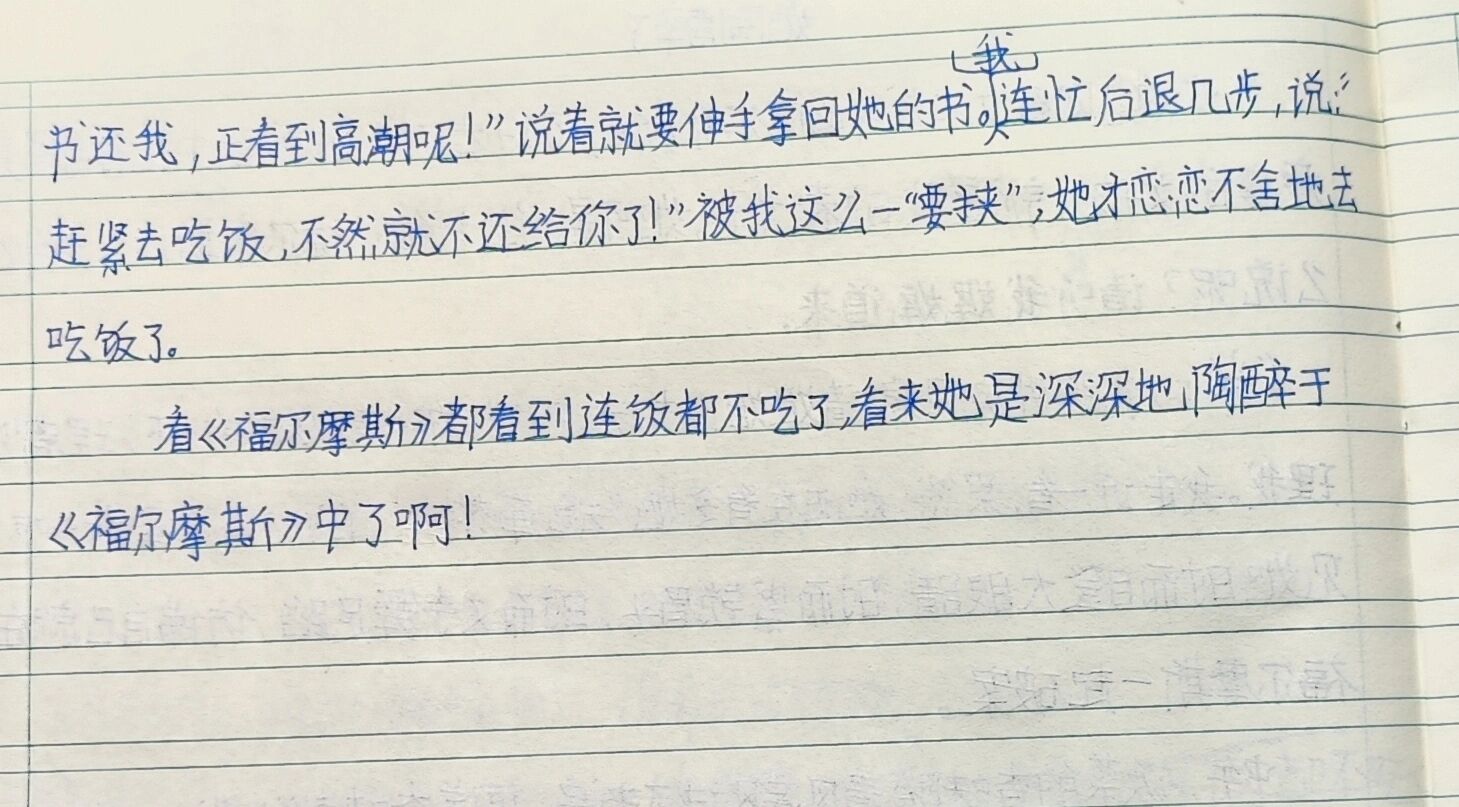 书还我，正看到高潮呢！”说着就要伸手拿回她的书。我连忙后退几步，说：“
赶紧去吃饭，不然就不还给你了！”被我这么一“要挟”，她才恋恋不舍地去
吃饭了。
看《福尔摩斯》都看到连饭都不吃了，看来她是深深地陶醉于
《福尔摩斯》中了啊！